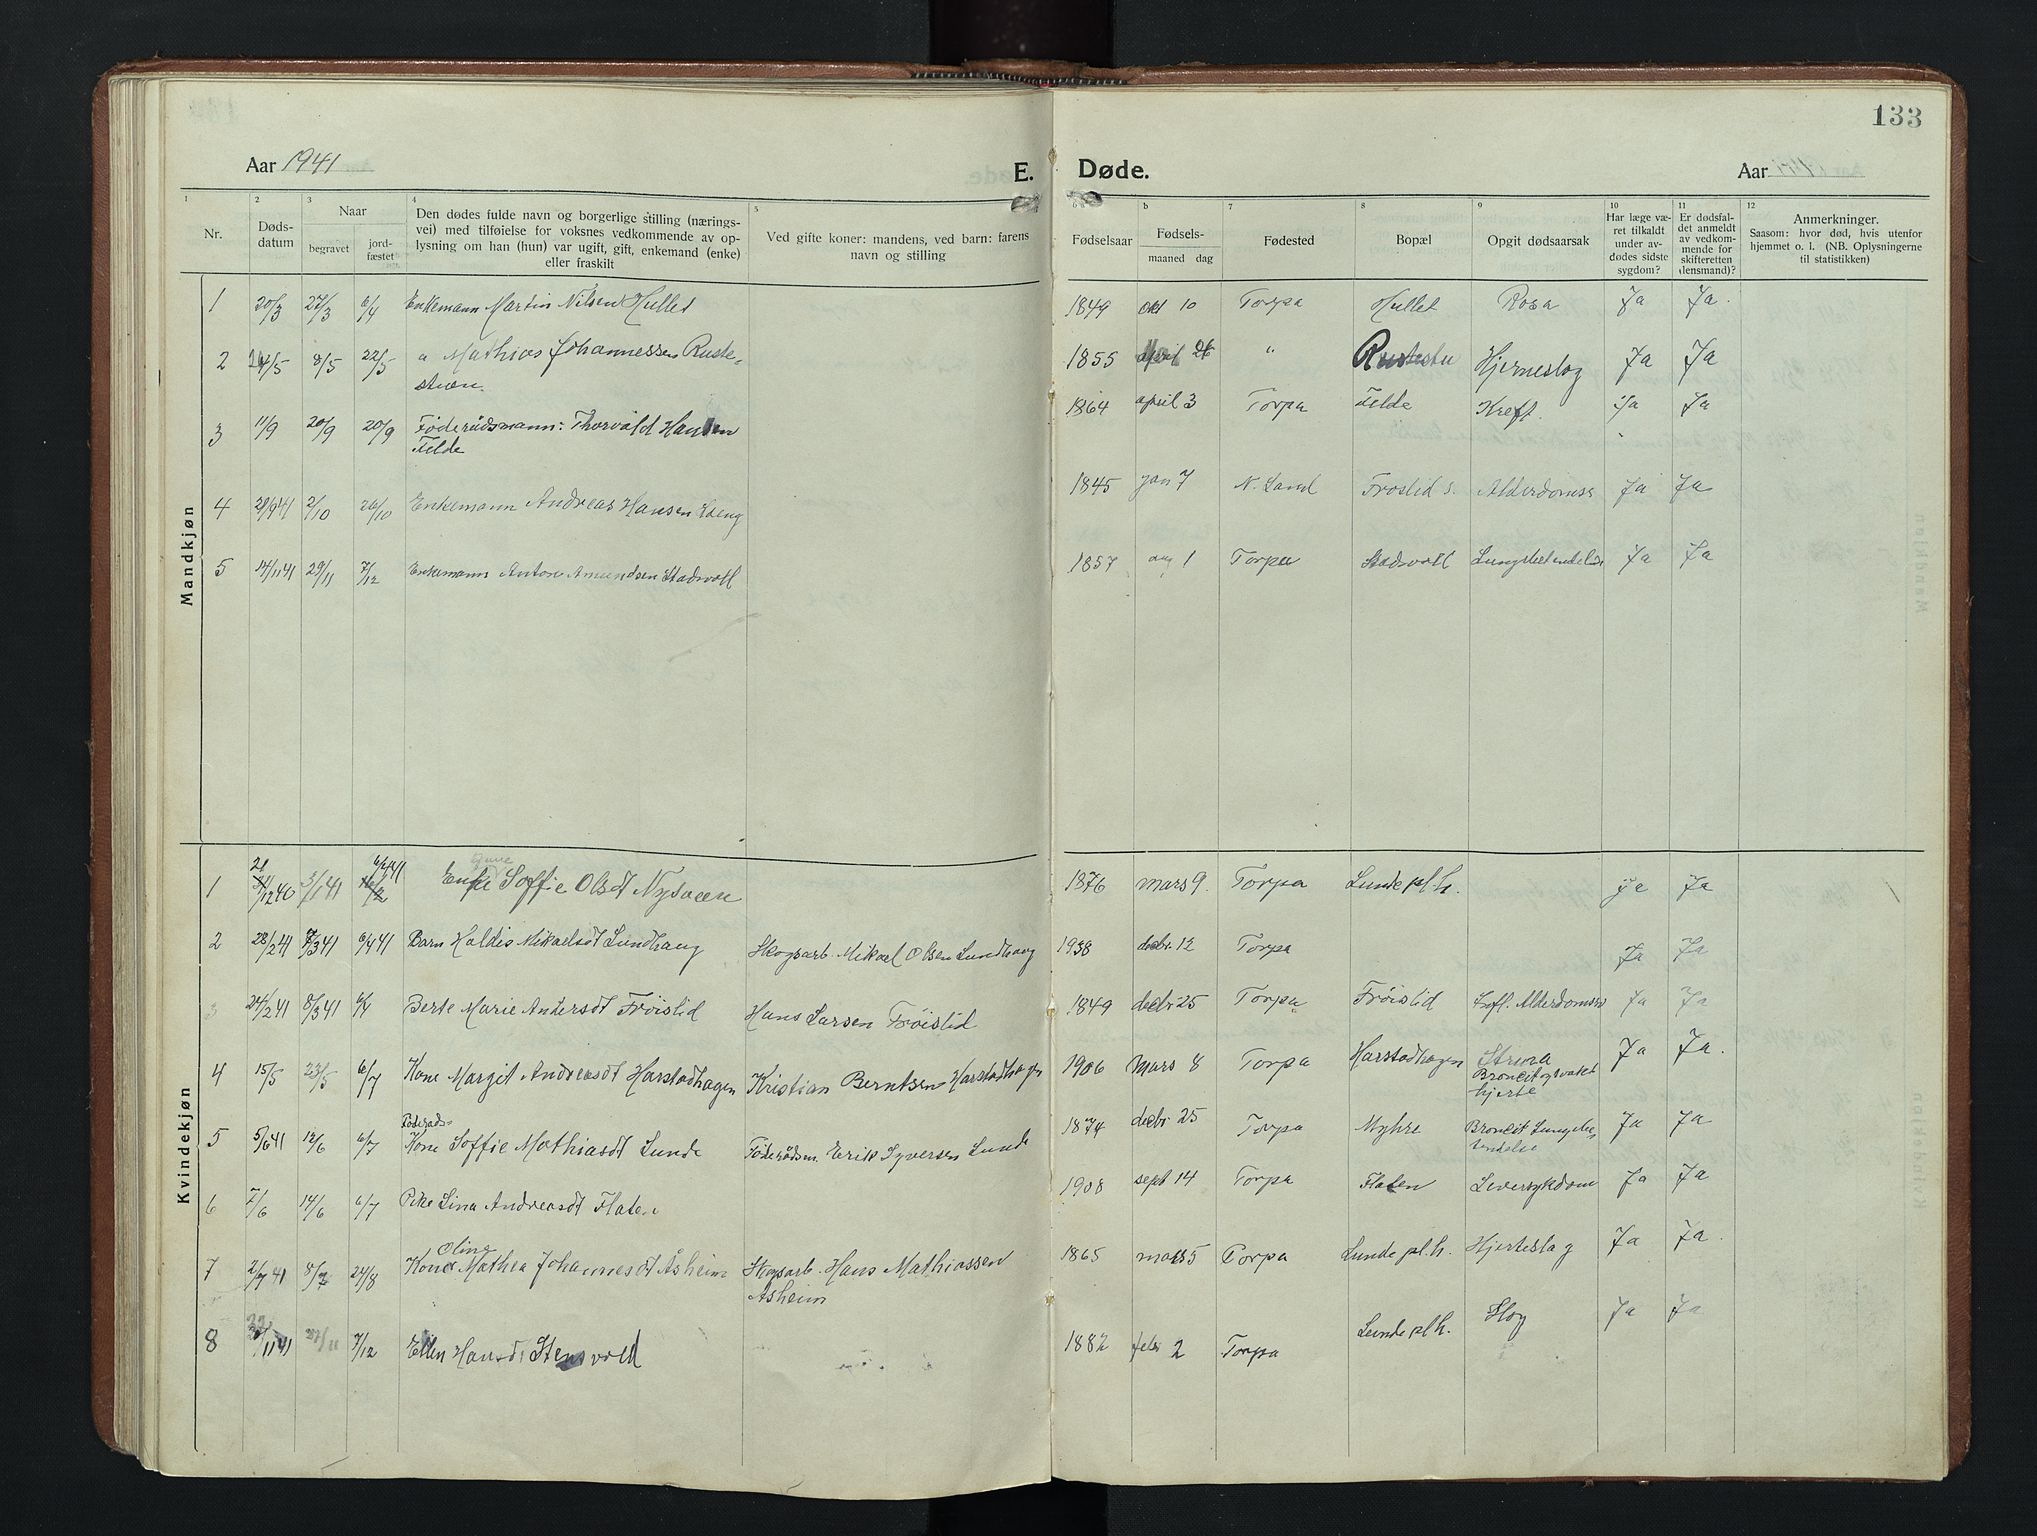 133
Aar 1941
E.
Døde.
Aar 1941
1 2 3 4 5 6 b 7 8 9 10 11 12
Nr.
Døds-
datum
Naar
begravet
jord-
fæstet
Den dødes fulde navn og borgerlige stilling (nærings-
vei) med tilføielse for voksnes vedkommende av op-
lysning om han (hun) var ugift, gift, enkemand (enke)
eller fraskilt
Ved gifte koner: mandens, ved barn: farens
navn og stilling
Fødselsaar
Fødsels-
maaned dag
Fødested
Bopæl
Opgit dødsaarsak
Har læge væ-
ret tilkaldt
under av-
dødes sidste
sygdom?
Er dødsfal-
det anmeldt
av vedkom-
mende for
skifteretten
(lensmand)?
Anmerkninger.
Saasom: hvor død, hvis utenfor
hjemmet o. l. (NB. Oplysningerne
til statistikken)
Mandkjøn
1 20/3 27/3 6/4 Enkemann Martin Nilsen Hullet 1849 okt 10 Torpa Hullet Rosa Ja Ja.
2 /5 8/5 22/5 " Mathias Johannessen Ruste-
stuen. 1855 april 26 " Rustestu Hjerneslag Ja Ja
3 11/9 20/9 20/9 Føderådsmann: Thorvald Hansen
Filde 1864 april 3 Torpa Filde Kreft. Ja Ja
4 28/9 41 2/10 26/10 Enkemann Andreas Hansen 1845 jan 7 N. Land Frøslid s. Alderdomss Ja Ja
5 14/11 41 29/11 7/12 Enkemann Anton Amundsen Stadsvoll 1857 aug 1 Torpa Stadsvoll Lungebetendelse Ja Ja
Kvindekjøn
1 21/12 40 3/1 41 6/4 41 Enke Soffie Olsdt Nysveen 1876 mars 9. Torpa Lunde pl.h. Ja Ja
2 28/2 41 8/3 41 6/4 41 Barn Haldis Mikaelsdt Lundhaug Skogsarb. Mikael Olsen Lundhaug 1938 decbr. 12 Torpa Ja Ja
3 24/2 41 8/3 41 6/4 Berte Marie Andersdt Frøislid Hans Larsen Frøislid 1849 decbr 25 Torpa Frøislid Alderdomss Ja Ja
4 15/5 23/5 6/7 Kone Margit Andreasdt Harstadhagen Kristian Berntsen Harstadhagen 1906 mars 8 Torpa Harstadhagen Struma
Broncit og svakt
hjerte Ja Ja.
5 5/6 41 12/6 6/7 Føderåds-
Kone Soffie Mathiasdt Lunde Føderådsm. Erik Syversen Lunde 1874 decbr 25 Torpa Myhre Broncit Lungebe-
tendelse Ja Ja
6 7/6 14/6 6/7 Pike Lina Andreasdt Flaten 1908 sept 14 Torpa Flaten Leversykdom Ja Ja
7 2/7 41 8/7 24/8 Oline
Kone Mathea Johannesdt Åsheim Skogsarb. Hans Mathiassen
Åsheim 1865 mars 5 Torpa Lunde pl.h. Hjerteslag Ja Ja.
8 /11 41 /11 7/12 Ellen Hansdt Stensvold 1882 febr 2 Torpa Lunde pl.h. Slag Ja Ja